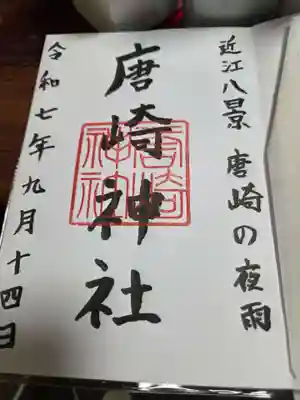 近江八景 唐崎の夜雨
唐崎神社
唐崎
神社
令和七年九月十四日